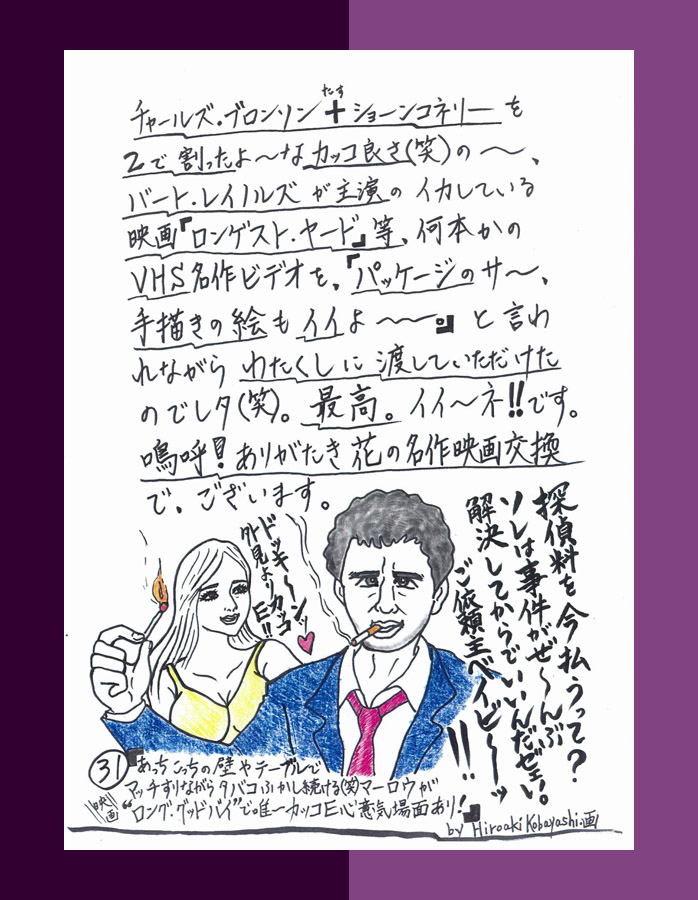 たす
チャールズ・ブロンソン+ショーンコネリーを
2で割ったよ〜なカッコ良さ(笑)の〜、
バート・レイノルズが主演のイカしている
映画『ロンゲスト・ヤード』等、何本かの
VHS名作ビデオを、『パッケージのサ〜、
手描きの絵もイイよ〜〜。』と言わ
れながらわたくしに渡していただけた
のでした(笑)。最高。イイ〜ネ!!です。
嗚呼!ありがたき花の名作映画交換
で、ございます。
探偵料を今払うって?
ソレは事件がぜ〜んぶ
解決してからでいいんだぜェい。
ご依頼主ベイビ〜〜ッ!!
ドッキ〜ンッ
外見よりカッコ
E!!
31
『あっちこっちの壁やテーブルで
マッチすりながらタバコふかし続ける(笑)マーロウが
"ロング・グッドバイ"で唯一カッコE心意気場面あり!』
映画
by Hiroaki Kobayashi・画